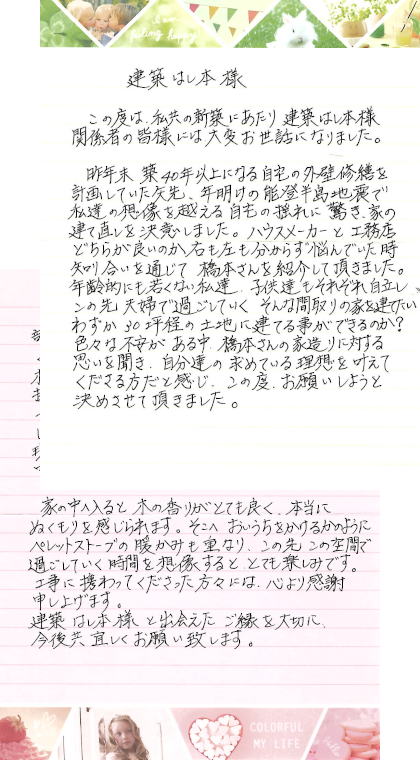 I am feeling happy!
建築はし本様
この度は、私共の新築にあたり建築はし本様
関係者の皆様には大変お世話になりました。
昨年末 築40年以上になる自宅の外壁修繕を
計画していた矢先、年明けの能登半島地震で
私達の想像を越える自宅の揺れに驚き、家の
建て直しを決意しました。ハウスメーカーと工務店
どちらが良いのか、右も左も分からず悩んでいた時
知り合いを通じて橋本さんを紹介して頂きました。
年齢的にも若くない私達、子供達もそれぞれ自立し
この先夫婦で過ごしていく そんな間取りの家を建てたい
わずか30坪程の土地に建てる事ができるのか?
色々な不安がある中、橋本さんの家造りに対する
思いを聞き、自分達の求めている理想を叶えて
くださる方だと感じ、この度、お願いしようと
決めさせて頂きました。
家の中へ入ると木の香りがとても良く、本当に
ぬくもりを感じられます。そこへおいうちをかけるかのように
ペレットストーブの暖かみも重なり、この先この空間で
過ごしていく時間を想像するととても楽しみです。
工事に携わってくださった方々には、心より感謝
申し上げます。
建築はし本様と出会えたご縁を大切に、
今後共宜しくお願い致します。
COLORFUL
MY LIFE
hello